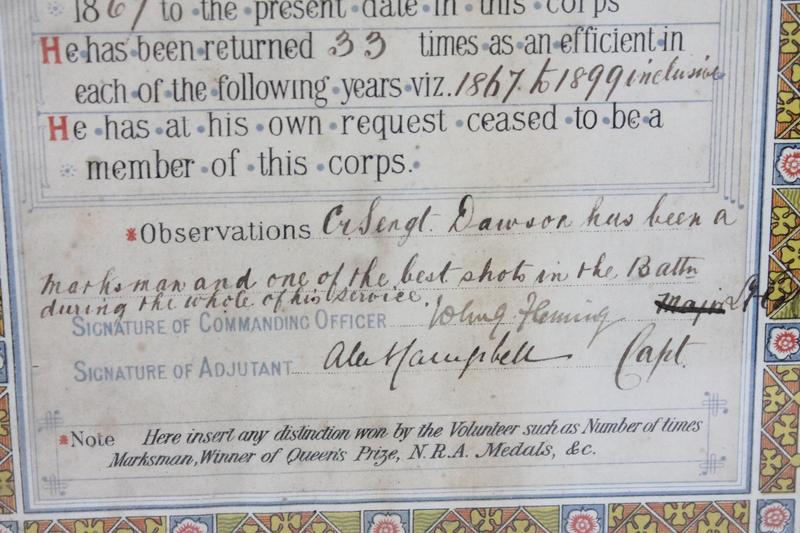 1867 to the present date in this corps
He has been returned 33 times as an efficient in
each of the following years viz. 1867 to 1899 inclusive
He has at his own request ceased to be a
member of this corps.
*Observations Cr Sergt. Dawson has been a
marksman and one of the best shots in the Battn
during the whole of his service.
SIGNATURE OF COMMANDING OFFICER John G. Fleming Major
SIGNATURE OF ADJUTANT Alex Campbell Capt.
*Note Here insert any distinction won by the Volunteer such as Number of times
Marksman, Winner of Queen's Prize, N.R.A. Medals, &c.